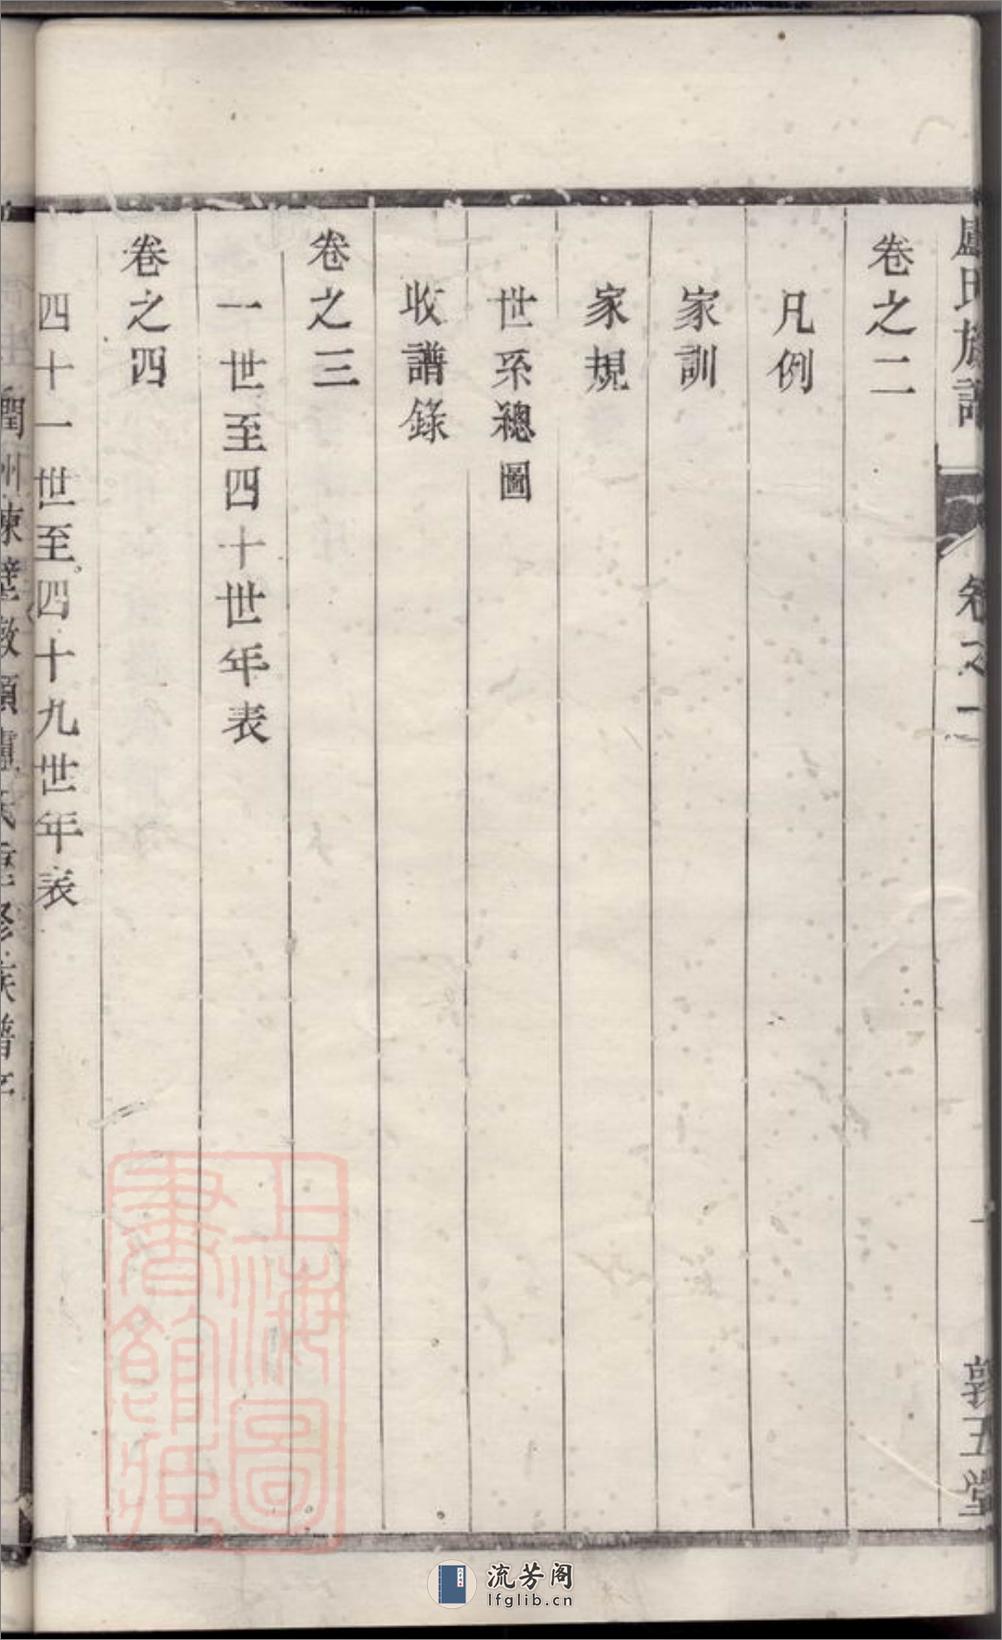 卷之二
凡例
家訓
家規
世系總圖
收譜錄
卷之三
一世至四十世年表
卷之四
四十一世至四十九世年表
氏族譜
卷之二
一
敦五堂
上海圖
書館藏
流芳阁
lfglib.cn